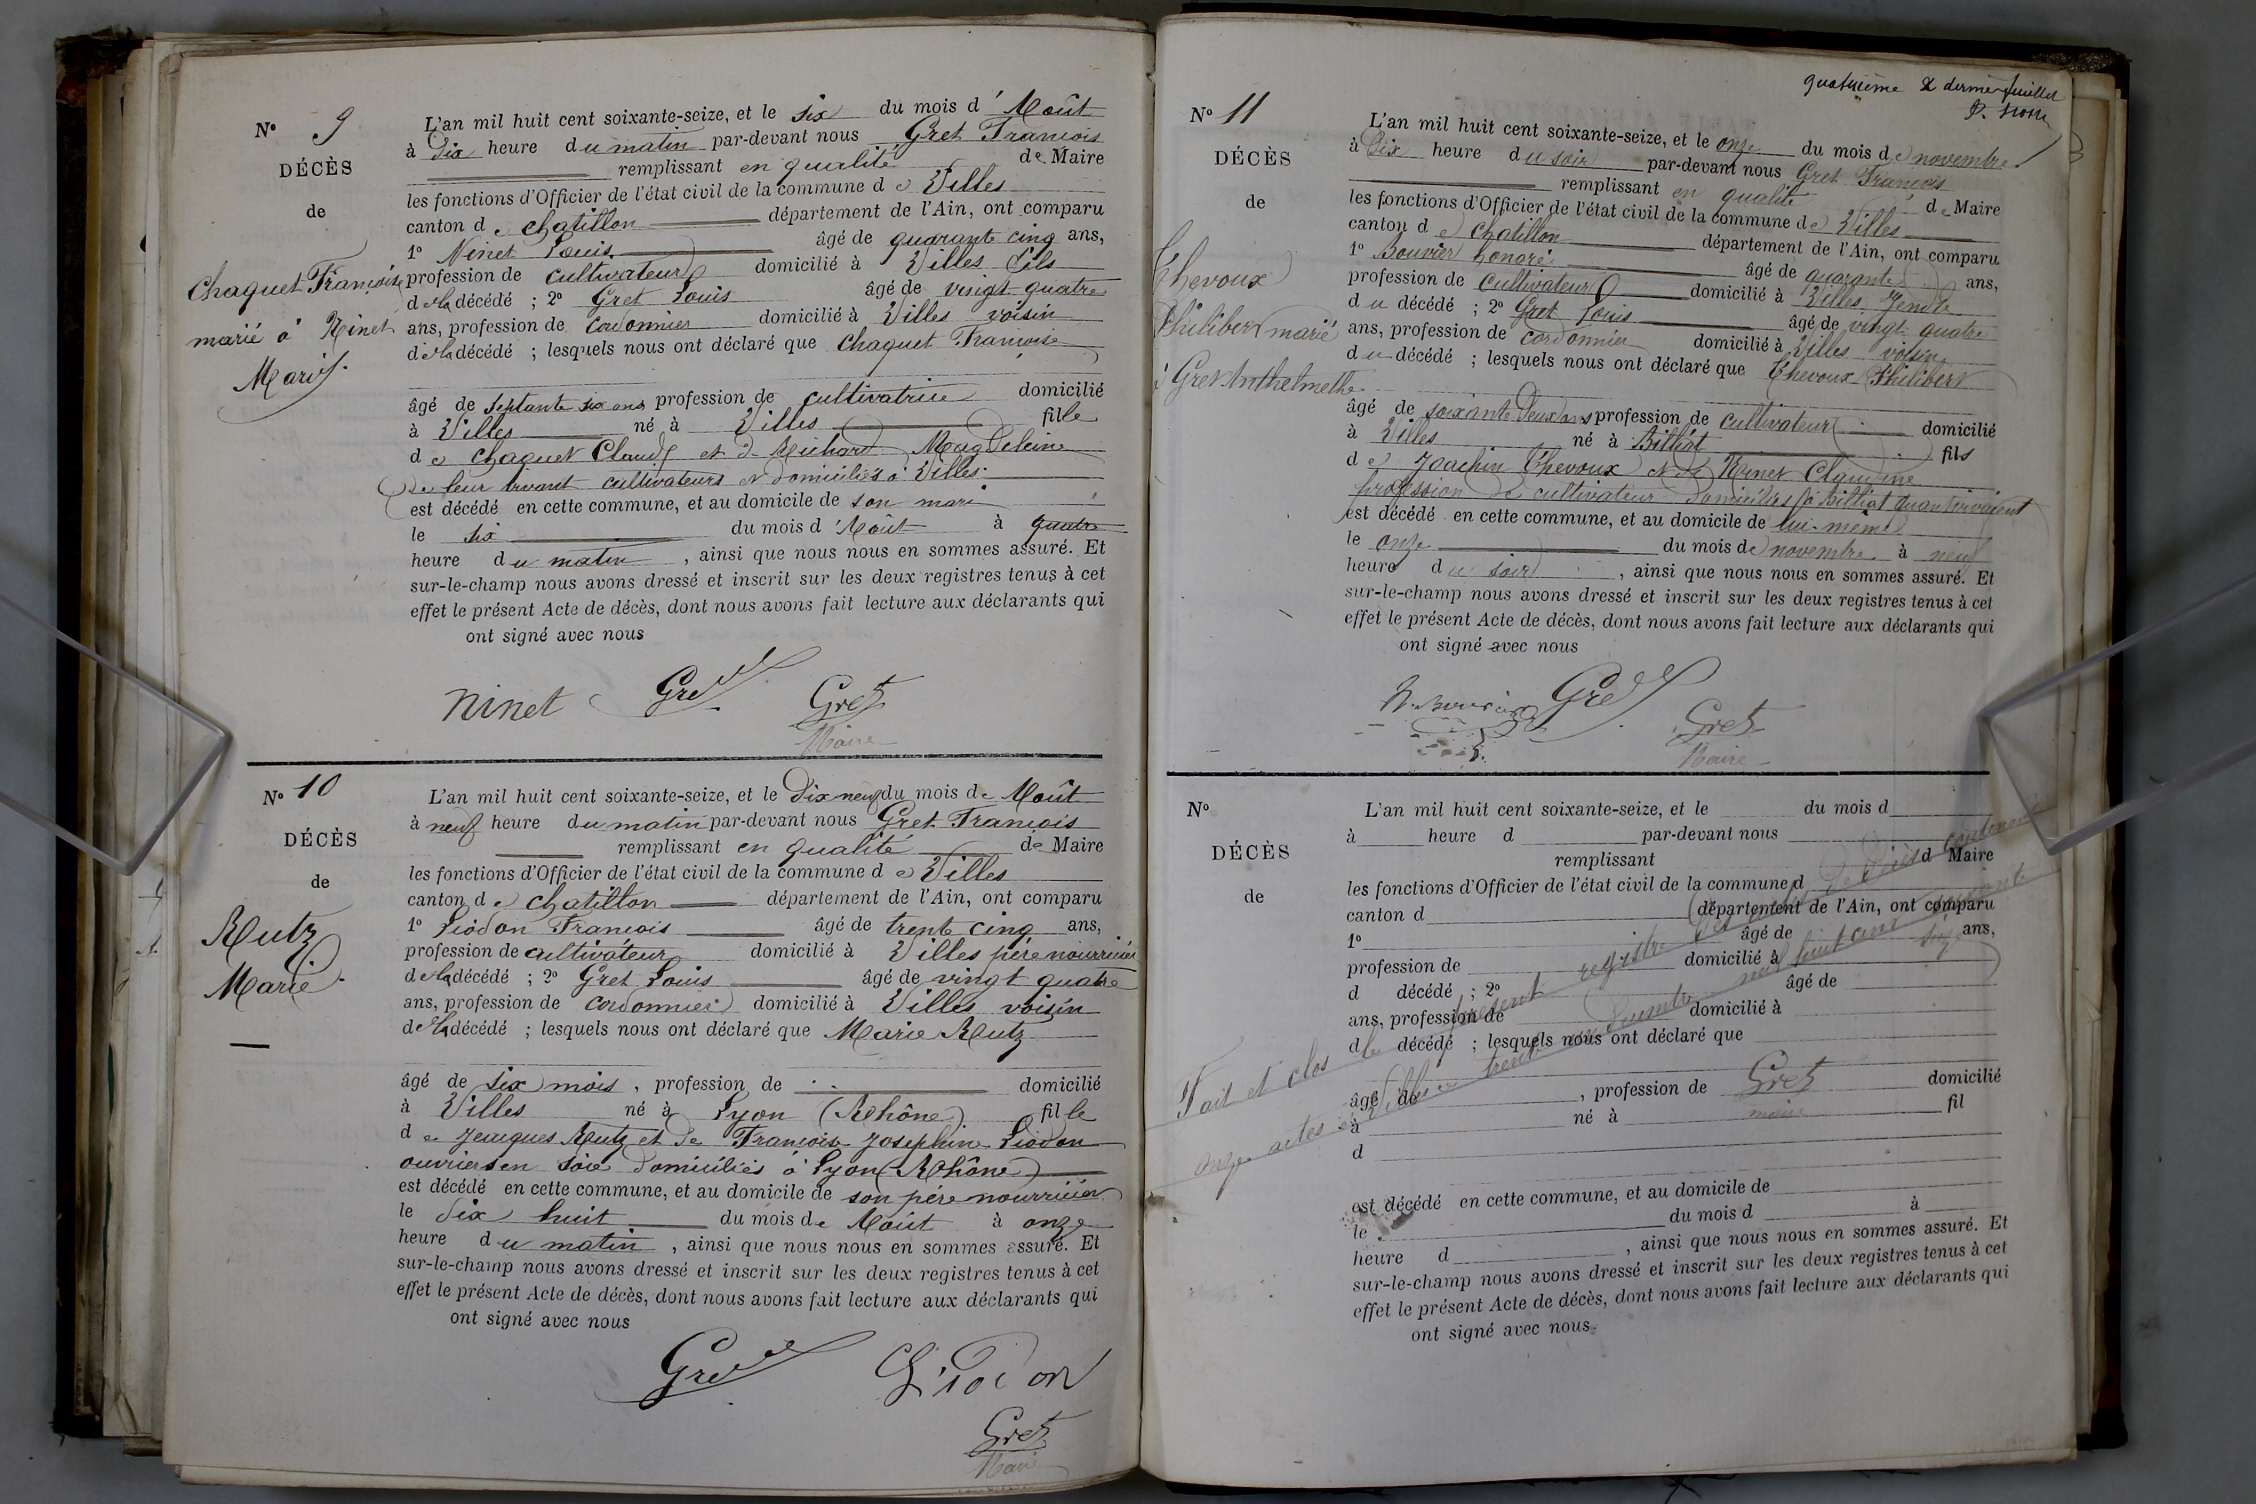 N° 9
DÉCÈS
de
Chaquet Françoise
marié à Ninet
Marie
L'an mil huit cent soixante-seize, et le six du mois d'Août
à dix heure du matin par-devant nous Gret François
remplissant en qualité de Maire
les fonctions d'Officier de l'état civil de la commune de Villes
canton de chatillon département de l'Ain, ont comparu
1° Ninet Louis âgé de quarante cinq ans,
profession de cultivateur domicilié à Villes fils
de la décédé ; 2° Gret Louis âgé de vingt quatre
ans, profession de cordonnier domicilié à Villes voisin
de la décédé ; lesquels nous ont déclaré que Chaquet Françoise
âgé de septante six ans profession de cultivatrice domicilié
à Villes né à Villes fille
de Chaquet Claude et de Richard Magdeleine
de leur vivant cultivateurs et domiciliés à Villes
est décédé en cette commune, et au domicile de son mari
le six du mois d'Août à quatre
heure du matin, ainsi que nous nous en sommes assuré. Et
sur-le-champ nous avons dressé et inscrit sur les deux registres tenus à cet
effet le présent Acte de décès, dont nous avons fait lecture aux déclarants qui
ont signé avec nous
Ninet Gret Gret
Maire
N° 10
DÉCÈS
de
Rutz
Marie
L'an mil huit cent soixante-seize, et le dix neuf du mois de Août
à neuf heure du matin par-devant nous Gret François
remplissant en qualité de Maire
les fonctions d'Officier de l'état civil de la commune de Villes
canton de chatillon département de l'Ain, ont comparu
1° Liodon François âgé de trente cinq ans,
profession de cultivateur domicilié à Villes père nourricier
de la décédé ; 2° Gret Louis âgé de vingt quatre
ans, profession de cordonnier domicilié à Villes voisin
de la décédé ; lesquels nous ont déclaré que Marie Rutz
âgé de six mois, profession de domicilié
à Villes né à Lyon (Rhône) fille
de Jacques Rutz et de Françoise Josephine Liodon
ouvriers en soie domiciliés à Lyon (Rhône)
est décédé en cette commune, et au domicile de son père nourricier
le dix huit du mois de Août à onze
heure du matin, ainsi que nous nous en sommes assuré. Et
sur-le-champ nous avons dressé et inscrit sur les deux registres tenus à cet
effet le présent Acte de décès, dont nous avons fait lecture aux déclarants qui
ont signé avec nous
Gret Liodon
Gret
Maire
quatrième & dernier feuillet
N° 11
DÉCÈS
de
Chevoux
Philibert marié
à Gret Anthelmette
L'an mil huit cent soixante-seize, et le onze du mois de novembre
à Dix heure du soir par-devant nous Gret François
remplissant en qualité de Maire
les fonctions d'Officier de l'état civil de la commune de Villes
canton de chatillon département de l'Ain, ont comparu
1° Bouvier honoré âgé de quarante ans,
profession de cultivateur domicilié à Villes Jendre
du décédé ; 2° Gret Louis âgé de vingt quatre
ans, profession de cordonnier domicilié à Villes voisin
du décédé ; lesquels nous ont déclaré que Chevoux Philibert
âgé de soixante deux ans profession de cultivateur domicilié
à Villes né à Billiat fils
de Joachin Chevoux et de Ninet Claudine
profession de cultivateur domiciliés à Billiat quant vivaient
est décédé en cette commune, et au domicile de lui-même
le onze du mois de novembre à neuf
heure du soir, ainsi que nous nous en sommes assuré. Et
sur-le-champ nous avons dressé et inscrit sur les deux registres tenus à cet
effet le présent Acte de décès, dont nous avons fait lecture aux déclarants qui
ont signé avec nous
Gret
Gret
Maire
N°
DÉCÈS
de
L'an mil huit cent soixante-seize, et le du mois d
à heure d par-devant nous
remplissant d Maire
les fonctions d'Officier de l'état civil de la commune d
canton d département de l'Ain, ont comparu
1° âgé de ans,
profession de domicilié à
d décédé ; 2° âgé de
ans, profession de domicilié à
d décédé ; lesquels nous ont déclaré que
âgé de , profession de domicilié
à né à fil
d
est décédé en cette commune, et au domicile de
le du mois d à
heure d , ainsi que nous nous en sommes assuré. Et
sur-le-champ nous avons dressé et inscrit sur les deux registres tenus à cet
effet le présent Acte de décès, dont nous avons fait lecture aux déclarants qui
ont signé avec nous
Fait et clos le présent registre des actes de décès contenant
onze actes à Villes le trente un décembre mil huit cent soixante
seize
Gret
maire